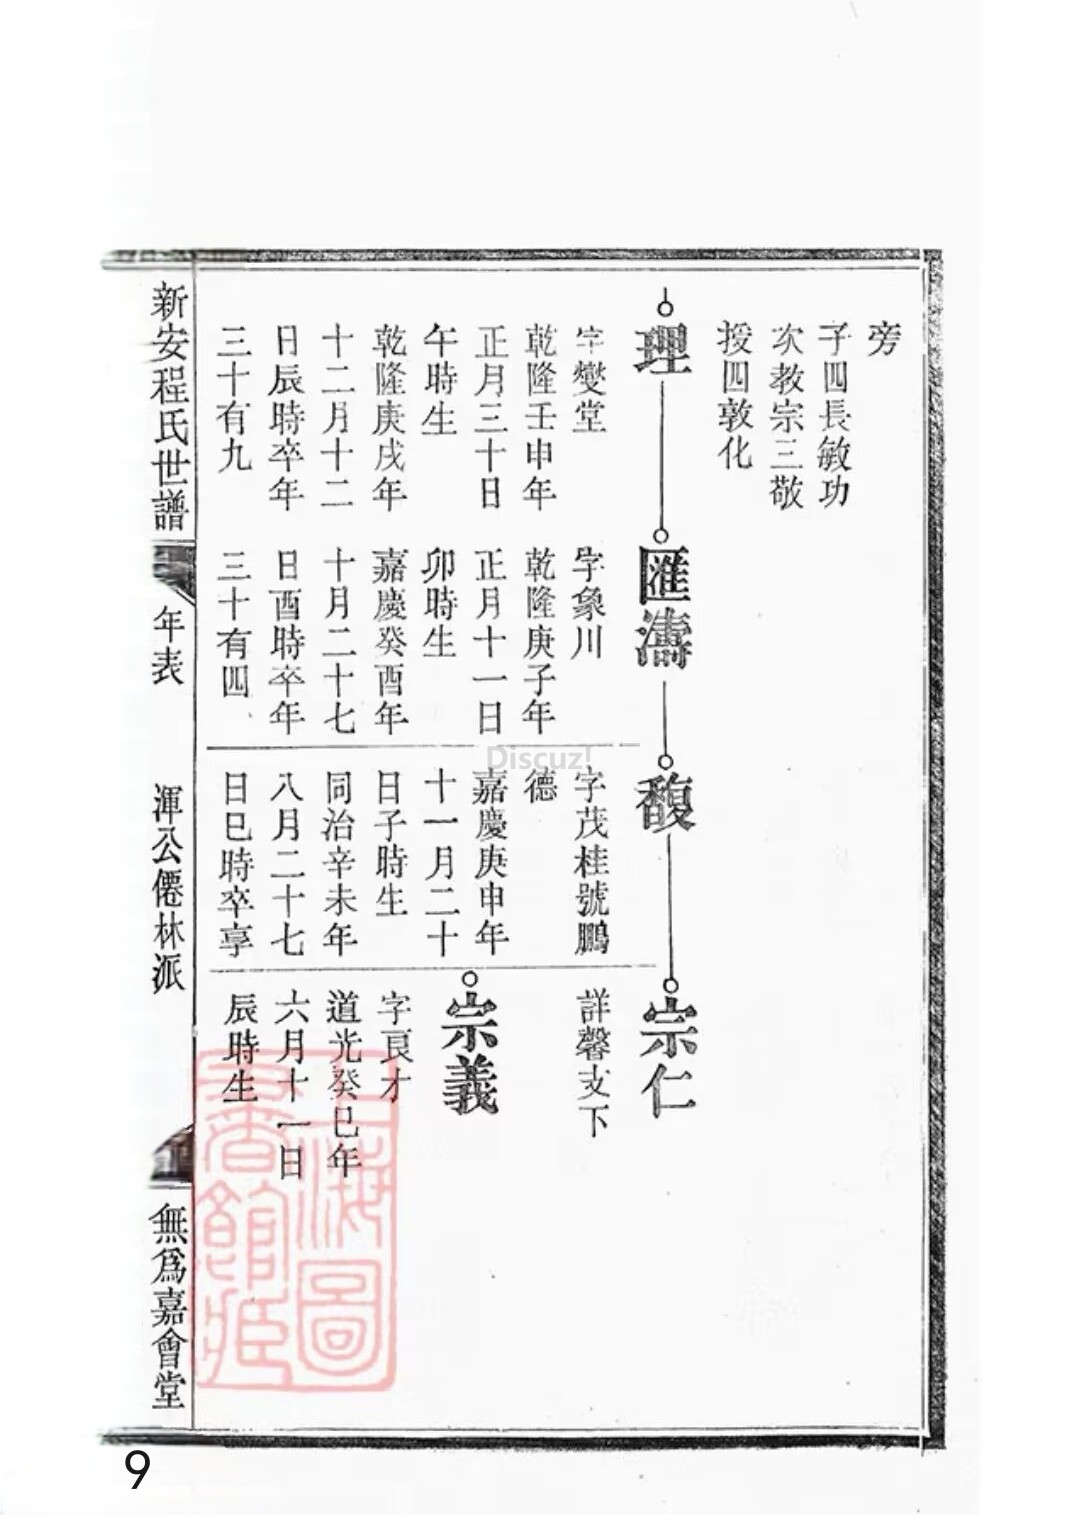 旁
子四長敏功
次教宗三敬
授四敦化
理
字燮堂
乾隆壬申年
正月三十日
午時生
乾隆庚戌年
十二月十二
日辰時卒年
三十有九
匯濤
字象川
乾隆庚子年
正月十一日
卯時生
嘉慶癸酉年
十月二十七
日酉時卒年
三十有四
馥
字茂桂號鵬
德
嘉慶庚申年
十一月二十
日子時生
同治辛未年
八月二十七
日巳時卒享
宗仁
詳馨支下
宗義
字良才
道光癸巳年
六月十一日
辰時生
新安程氏世譜
年表
渾公僊林派
無爲嘉會堂
上海圖
書館藏
Discuz!
9